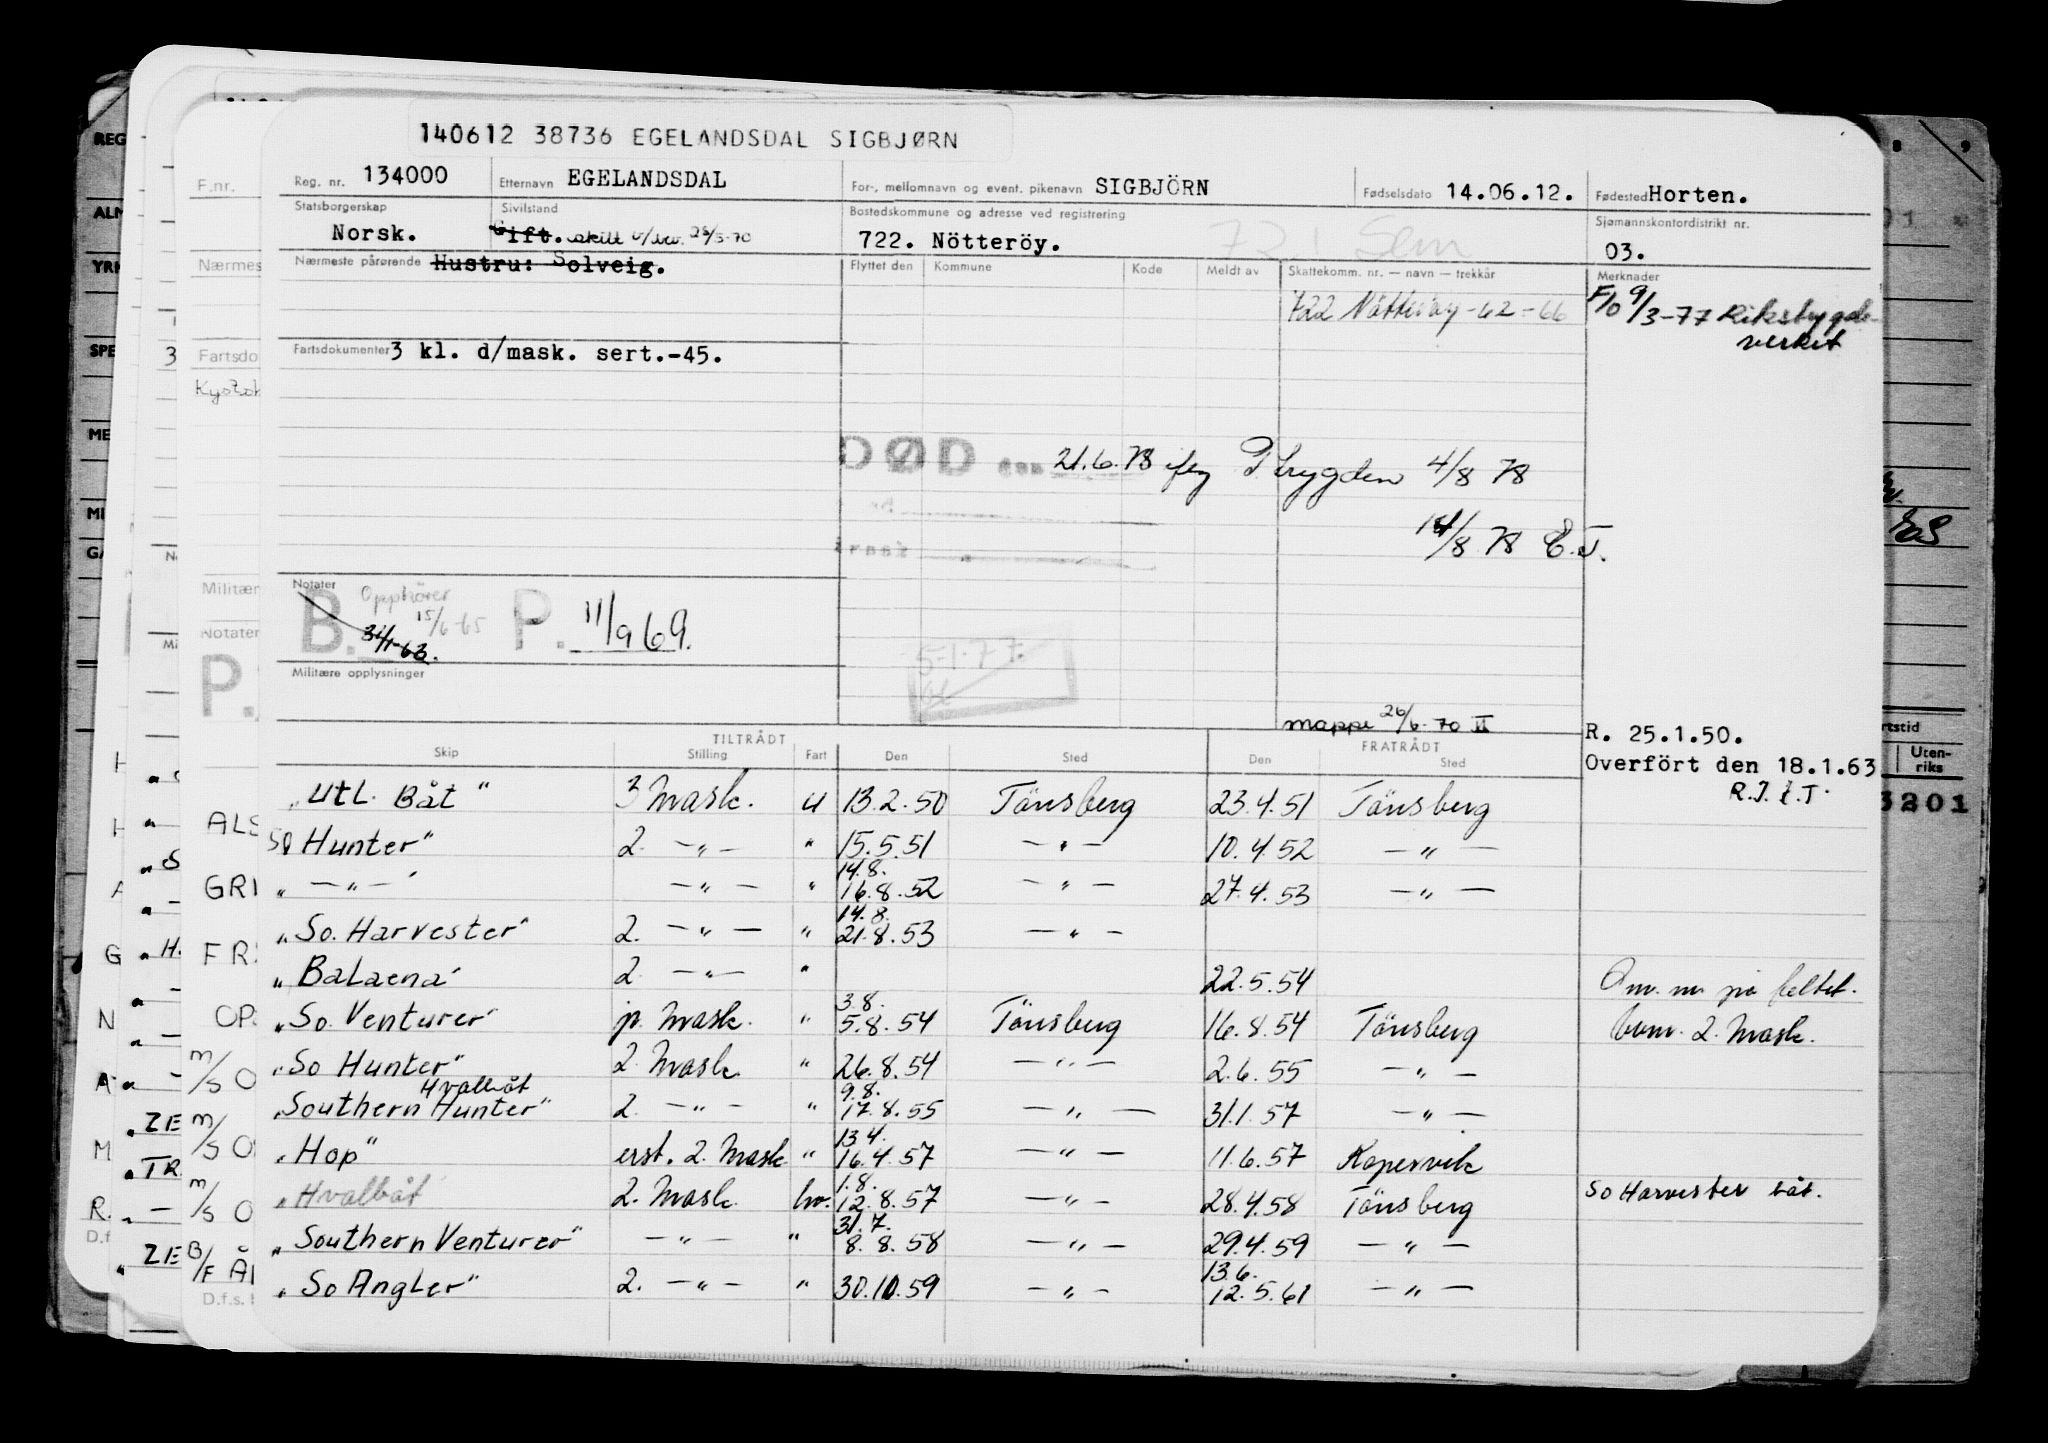 140612 38736 EGELANDSDAL SIGBJØRN
Reg. nr. 134000 Etternavn EGELANDSDAL For-, mellomnavn og event. pikenavn SIGBJÖRN Fødselsdato 14.06.12. Fødested Horten.
Statsborgerskap Sivilstand Bostedskommune og adresse ved registrering Sjømannskontordistrikt nr.
Norsk. Gift. skilt 722. Nötteröy. 03.
Nærmeste pårørende Hustru: Solveig. Flyttet den Kommune Kode Meldt av Skattekomm. nr. — navn — trekkår Merknader
722 Nötteröy -62-66 F/o 9/3-77 Rikstrygde-
verket
Fartsdokumenter 3 kl. d/mask. sert.-45.
DØD den 21.6.78 iflg trygden 4/8 78
14/8 78 E.T.
Notater
B. Opphører 15/6-65 P. 11/9 69.
31/1-63.
5-1-77.
Militære opplysninger
mappe 26/6-70 II
R. 25.1.50.
TILTRÅDT FRATRÅDT
Skip Stilling Fart Den Sted Den Sted Overfört den 18.1.63
R.T. E.T.
"Utl. Båt" 3 Mask. u 13.2.50 Tönsberg 23.4.51 Tönsberg
So Hunter" 2. —"— " 15.5.51 —"— 10.4.52 —"—
" —"— " —"— " 14.8. 16.8.52 —"— 27.4.53 —"—
"So. Harvester" 2. —"— " 14.8. 21.8.53 —"—
"Balaena" 2 —"— " 22.5.54 på feltet.
"So. Venturer" jr. Mask. " 3.8. 5.8.54 Tönsberg 16.8.54 Tönsberg 2. Mask.
"So Hunter" 2 Mask " 26.8.54 —"— 2.6.55 —"—
Hvalbåt
"Southern Hunter" 2. —"— " 9.8. 17.8.55 —"— 31.1.57 —"—
"Hop" erst. 2. Mask " 13.4. 16.4.57 —"— 11.6.57 Kopervik
"Hvalbåt 2. Mask. hv. 1.8. 12.8.57 —"— 28.4.58 Tönsberg So Harvester båt.
"Southern Venturer" —"— " 31.7. 8.8.58 —"— 29.4.59 —"—
"So Angler" 2. —"— " 30.10.59 —"— 13.6. 12.5.61 —"—
F.nr.
Nærmes
Fartsdo
Militær
Notater
P.
REG
YRK
SPE
ALS
GRI
ZE
TR.
D.f.s.
Uten-
riks
3201